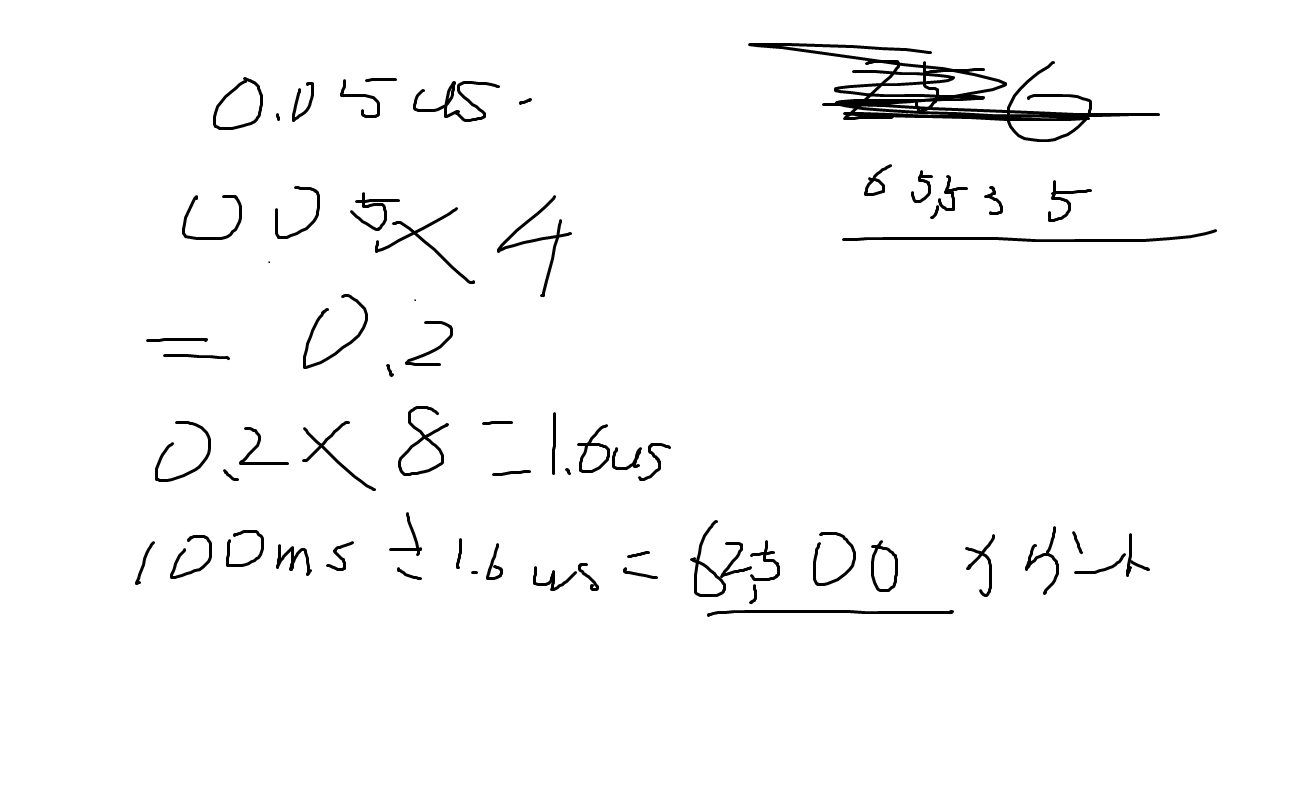 0.05us.
005×4
=0.2
0.2×8=1.6us
100ms÷1.6us=62,500
65,535